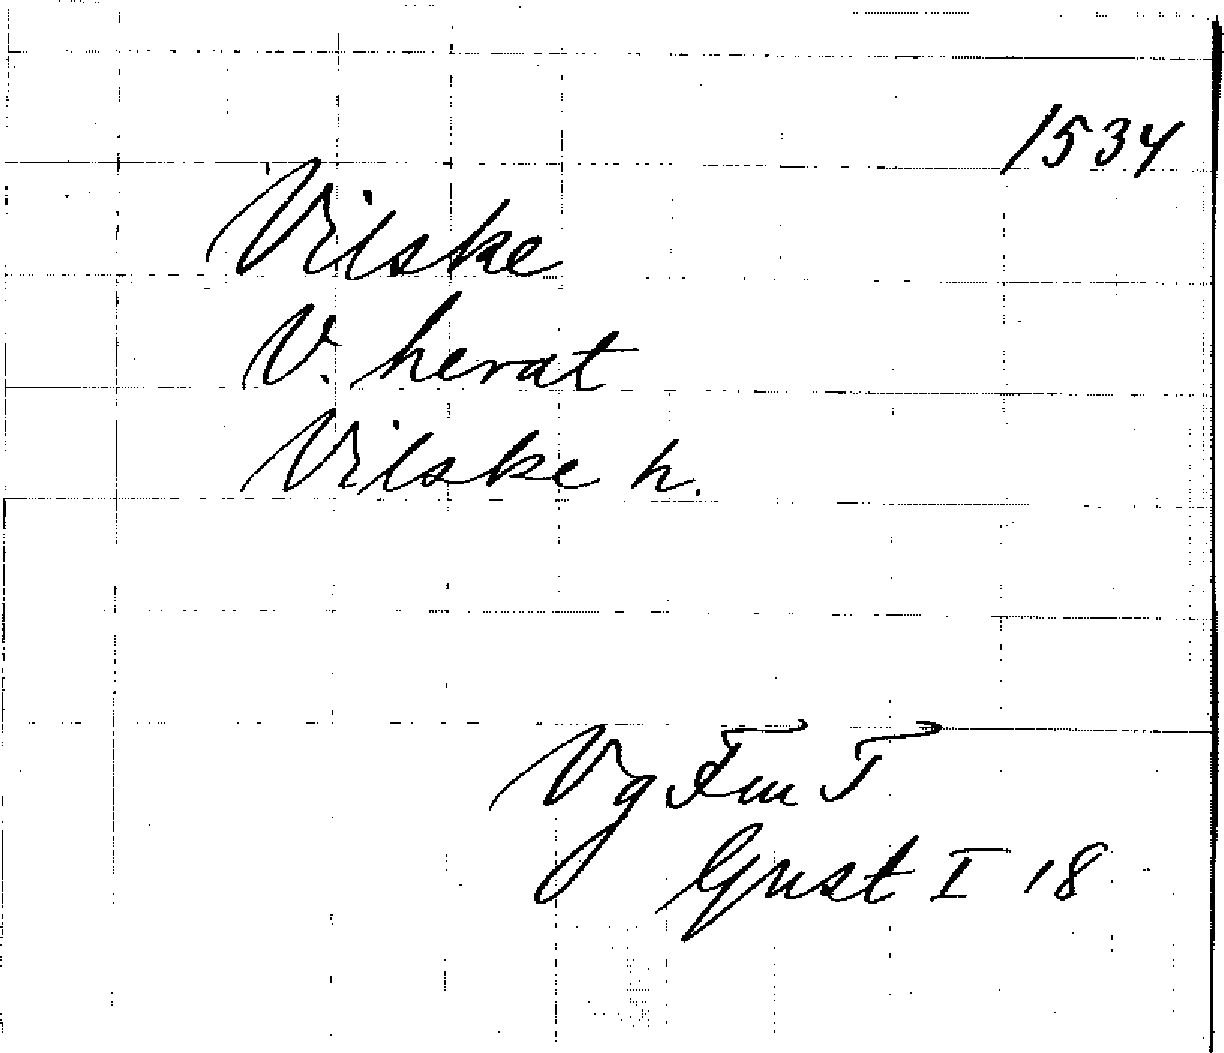 1534
Vilske
V. herat
Vilske h.
Vg FmT
Gust I 18